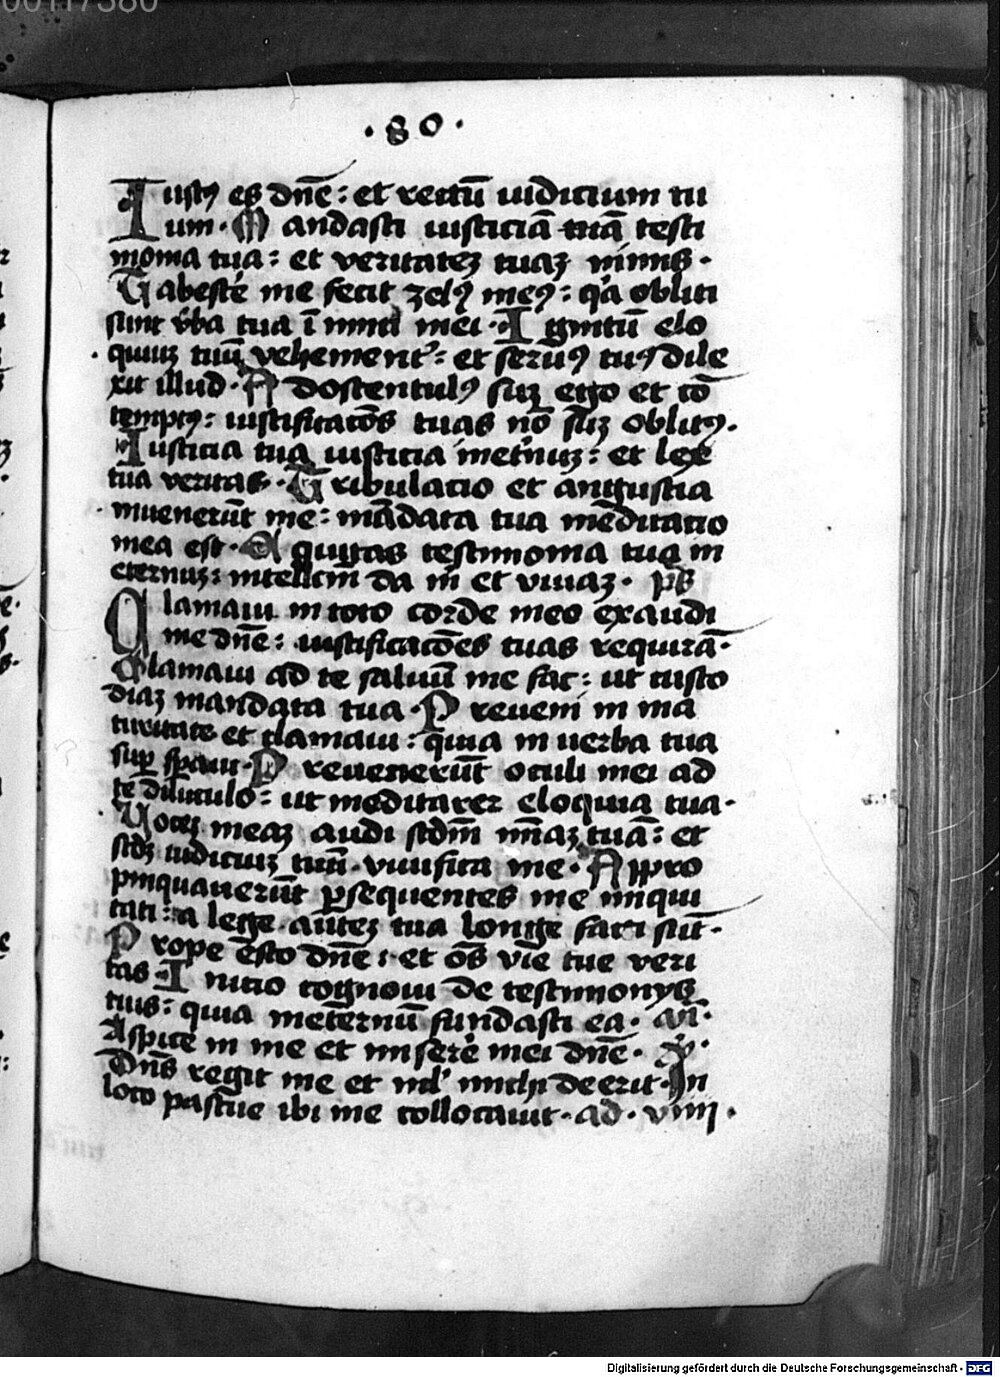 00117380
· 80 ·
Iustꝰ es dn̄e : et rectū iudicium tu
um · Mandasti iusticiā tuā testi
monia tua : et veritatez tuaz nimis ·
Tabesce̾ me fecit zelꝰ meꝰ : q̾a obliti
sunt v̾ba tua ī nimici mei · Ignitū elo
quiuz tuū vehement̾ : et seruꝰ tuꝰ dile
xit illud · Adolescentulꝰ suz ego et cō
temptꝰ : iustificatōes tuas nō suz oblitꝰ ·
Iusticia tua iusticia inet̾nuz : et lex
tua veritas · Tribulacio et angustia
inuenerūt me : mādata tua meditatio
mea est · Equitas testimonia tua in
eternuz : intellcm̄ da m̄ et viuaz · ps̄
Clamaui in toto corde meo exaudi
me dn̄e : iustificatōes tuas requirā ·
Clamaui ad te saluū me fac : ut custo
diaz mandata tua · Preueni in ma
turitate et clamaui : quia in uerba tua
sup̄ sp̄aui · Preuenerūt oculi mei ad
te diluculo : ut meditarer eloquia tua ·
Vocez meaz audi scdm̄ mīaz tuā : et
scdz iudiciuz tuū · viuifica me · Appro
pinquauerūt ꝑsequentes me iniqui
tati : a lege autez tua longe facti sūt ·
Prope esto dn̄e : et oēs vie tue veri
tas · Initio cognoui de testimonys
tuis : quia ineternū fundasti ea · an̄ ·
Aspice in me et miserere mei dn̄e · p̄s ·
Dn̄s regit me et nil' michi deerit · In
loco pascue ibi me collocauit · ad · viiij ·
Digitalisierung gefördert durch die Deutsche Forschungsgemeinschaft - DFG